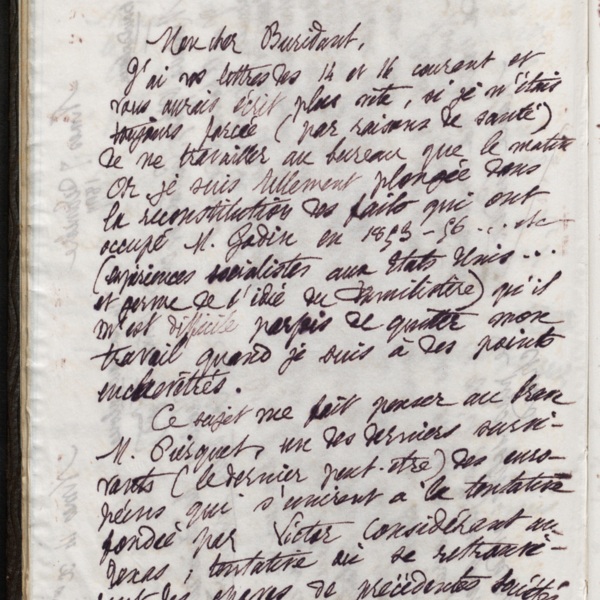 Mon cher Buridant,
J'ai vos lettres des 14 et 16 courant et
vous aurais écrit plus vite, si je n'étais
toujours forcée (par raisons de santé)
de ne travailler au bureau que le matin
Or je suis tellement plongée dans
la reconstitution des faits qui ont
occupé M. Godin en 1853-56 ... etc
(expériences socialistes aux Etats Unis ...
et germe de l'idée du Familistère) qu'il
m'est difficile parfois de quitter mon
travail quand je suis à des points
enchevêtrés.
Ce sujet me fait penser au brave
M. Picquet, un des derniers survi-
vants (le dernier peut-être) des euro-
péens qui s'unirent à la tentative
fondée par Victor Considérant au
Texas ; tentative où se retrouvè-
rent des épaves de précédentes sociétés